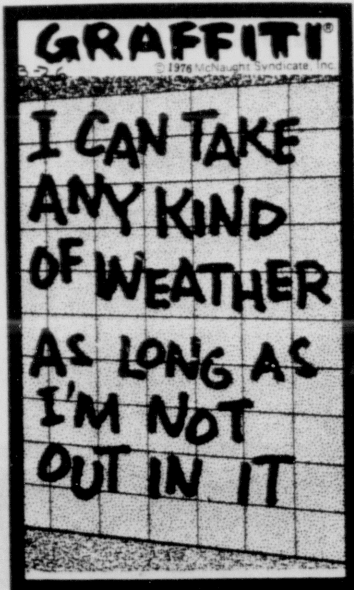 GRAFFITI®
3-26
© 1976 McNaught Syndicate, Inc.
I CAN TAKE
ANY KIND
OF WEATHER
AS LONG AS
I'M NOT
OUT IN IT